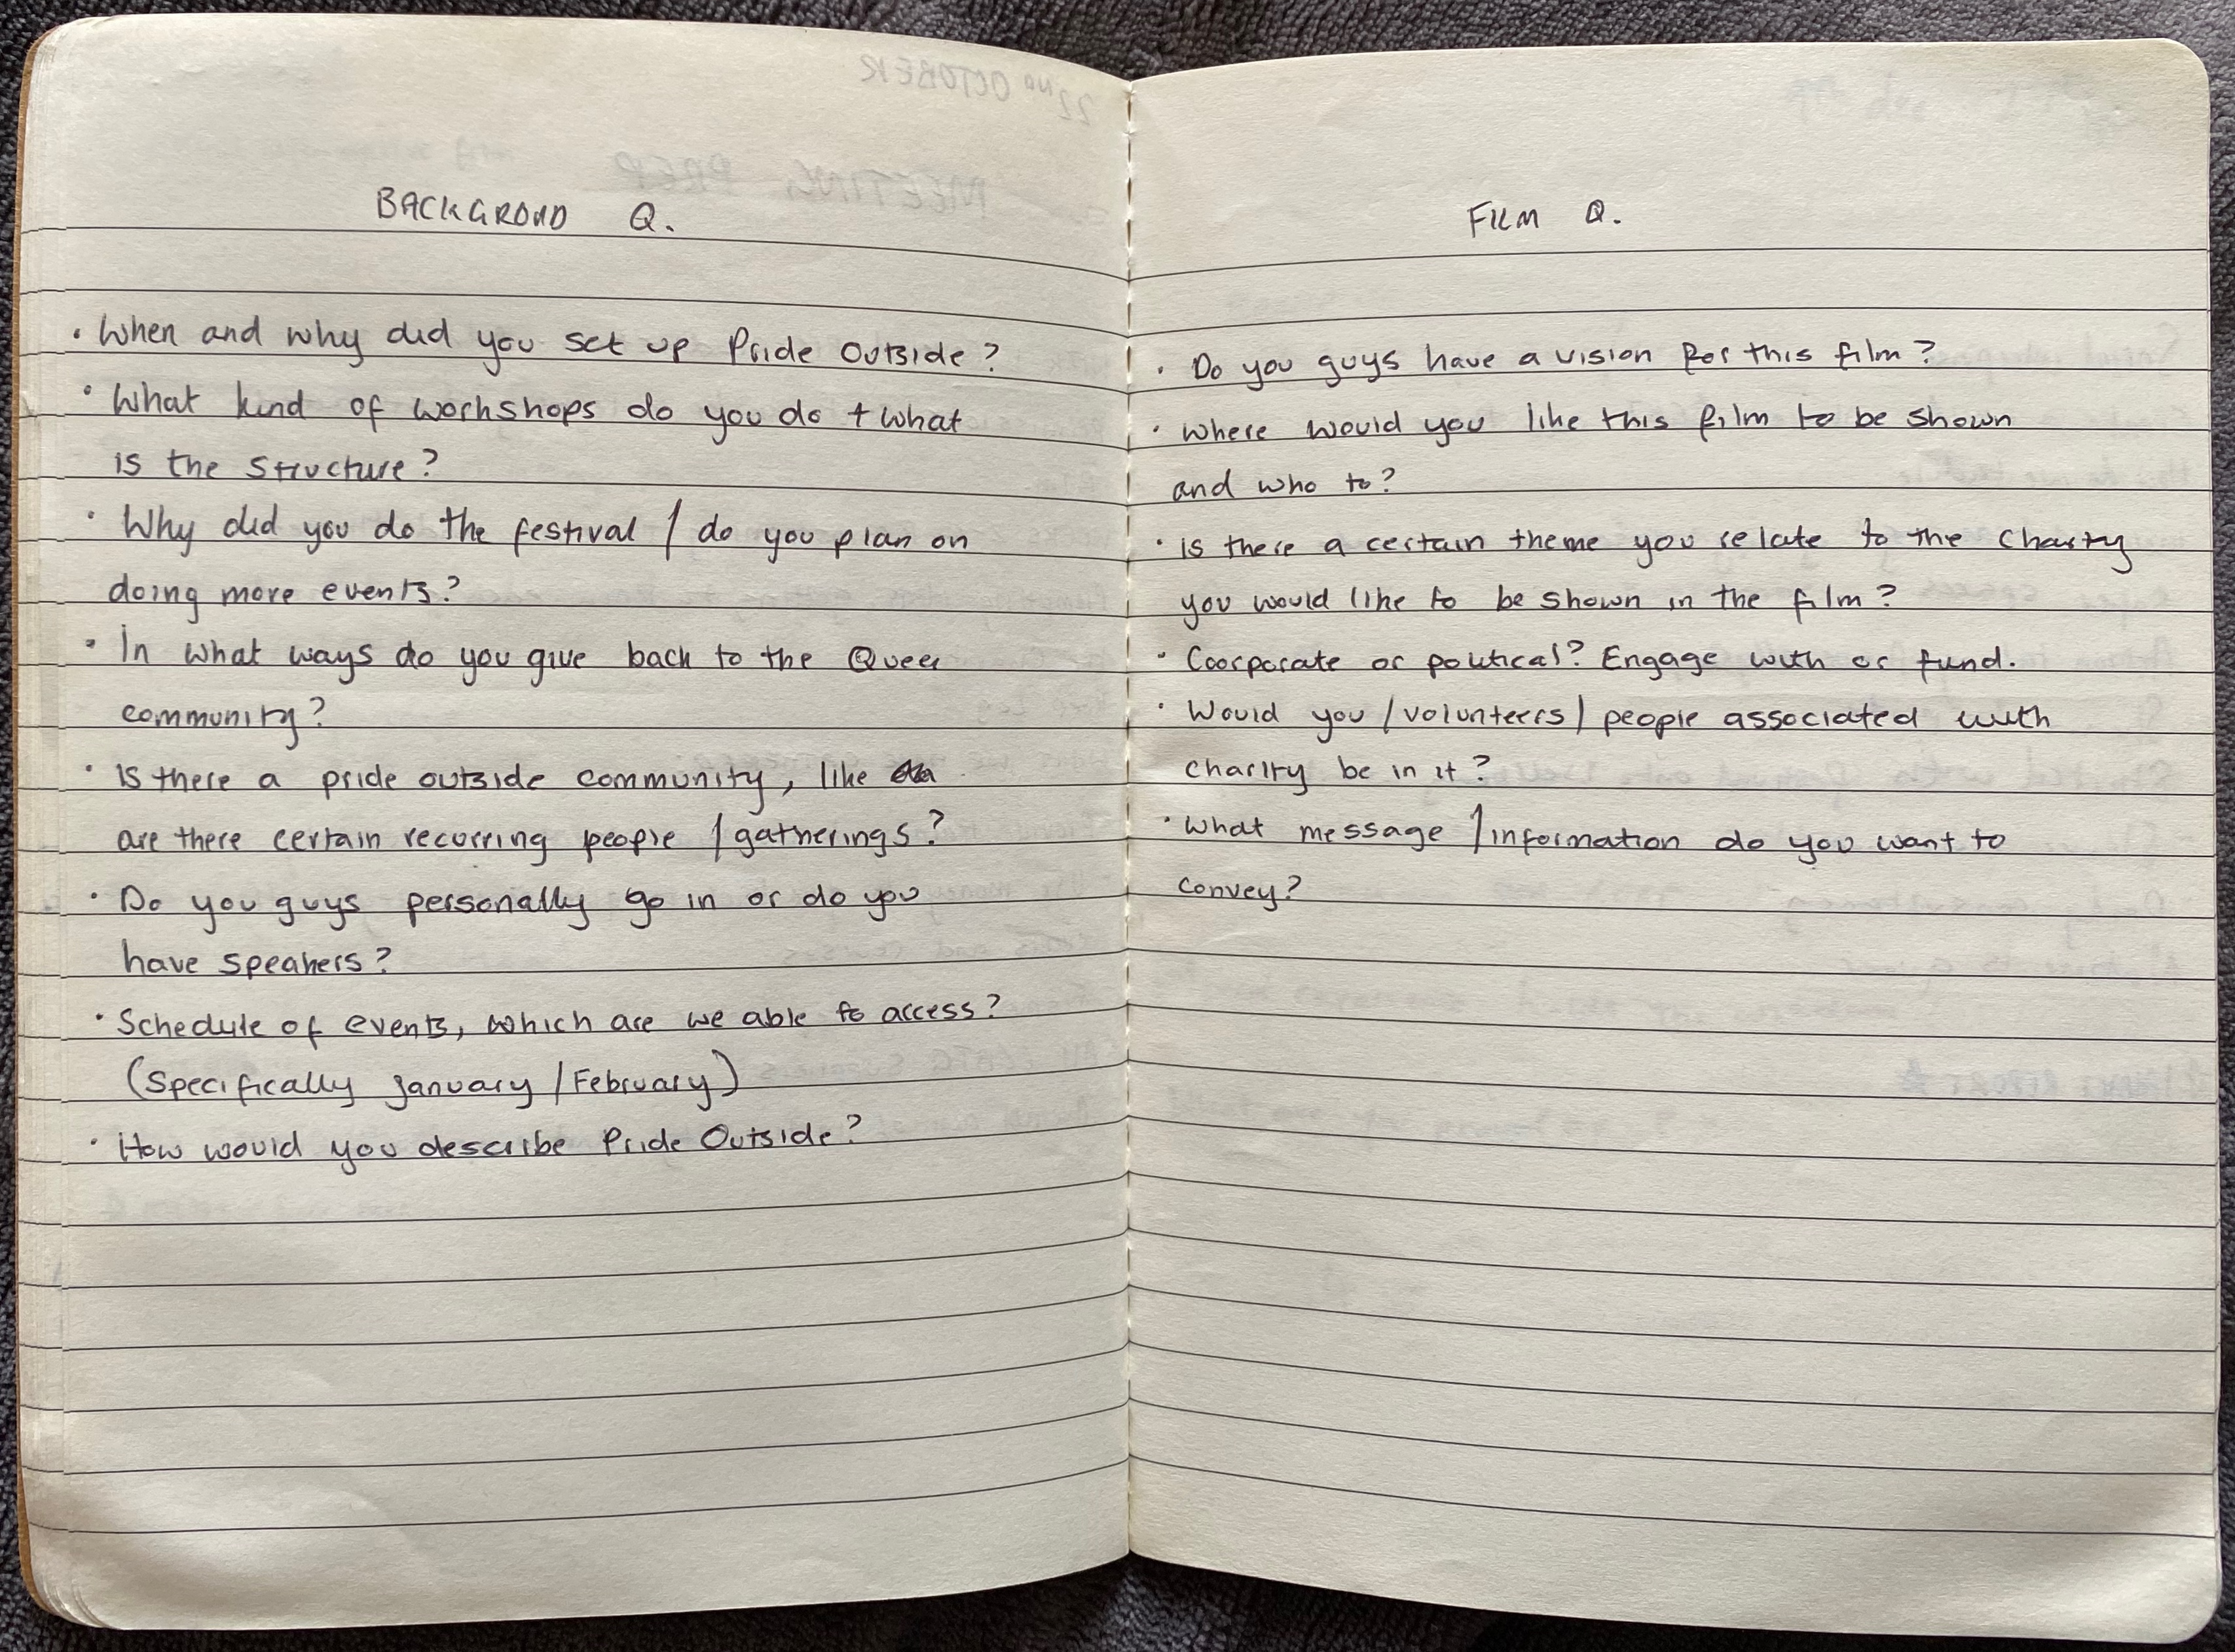 BACKGROUND Q.
· When and why did you set up Pride Outside?
· What kind of workshops do you do + what
is the structure?
· Why did you do the festival / do you plan on
doing more events?
· In what ways do you give back to the Queer
community?
· Is there a pride outside community, like
are there certain recurring people / gatherings?
· Do you guys personally go in or do you
have speakers?
· Schedule of events, which are we able to access?
(Specifically January / February)
· How would you describe Pride Outside?
FILM Q.
· Do you guys have a vision for this film?
· Where would you like this film to be shown
and who to?
· is there a certain theme you relate to the charity
you would like to be shown in the film?
· Coorporate or political? Engage with or fund.
· Would you / volunteers / people associated with
charity be in it?
· What message / information do you want to
convey?
22ND OCTOBER
MEETING PREP